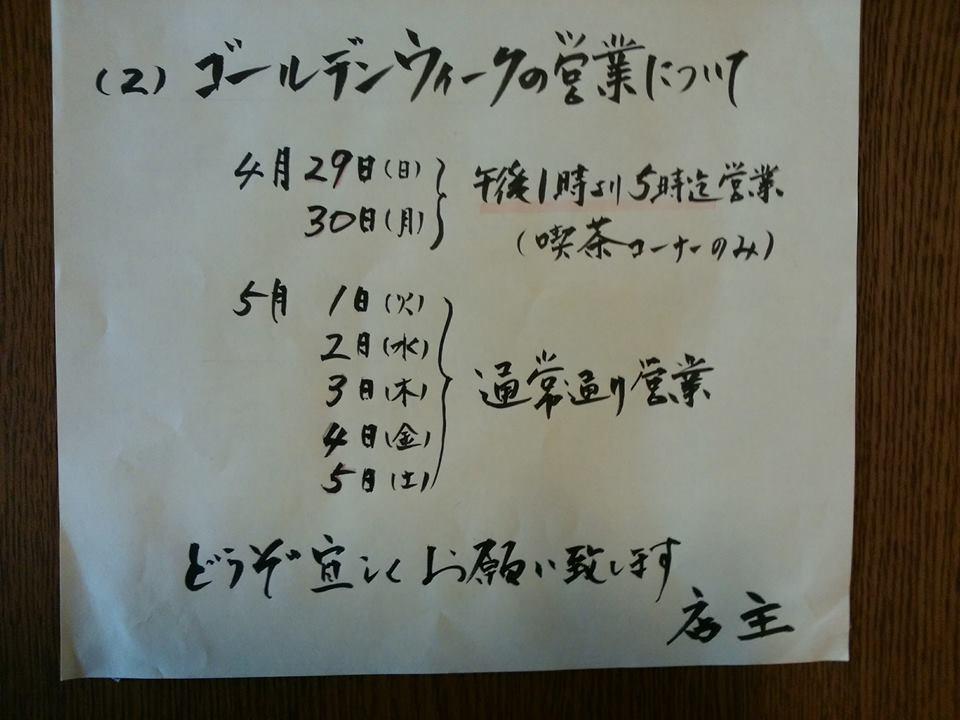 (2) ゴールデンウィークの営業について
4月 29日(日) 午後1時より5時迄営業
30日(月) (喫茶コーナーのみ)
5月 1日(火)
2日(水)
3日(木) 通常通り営業
4日(金)
5日(土)
どうぞ宜しくお願い致します
店主